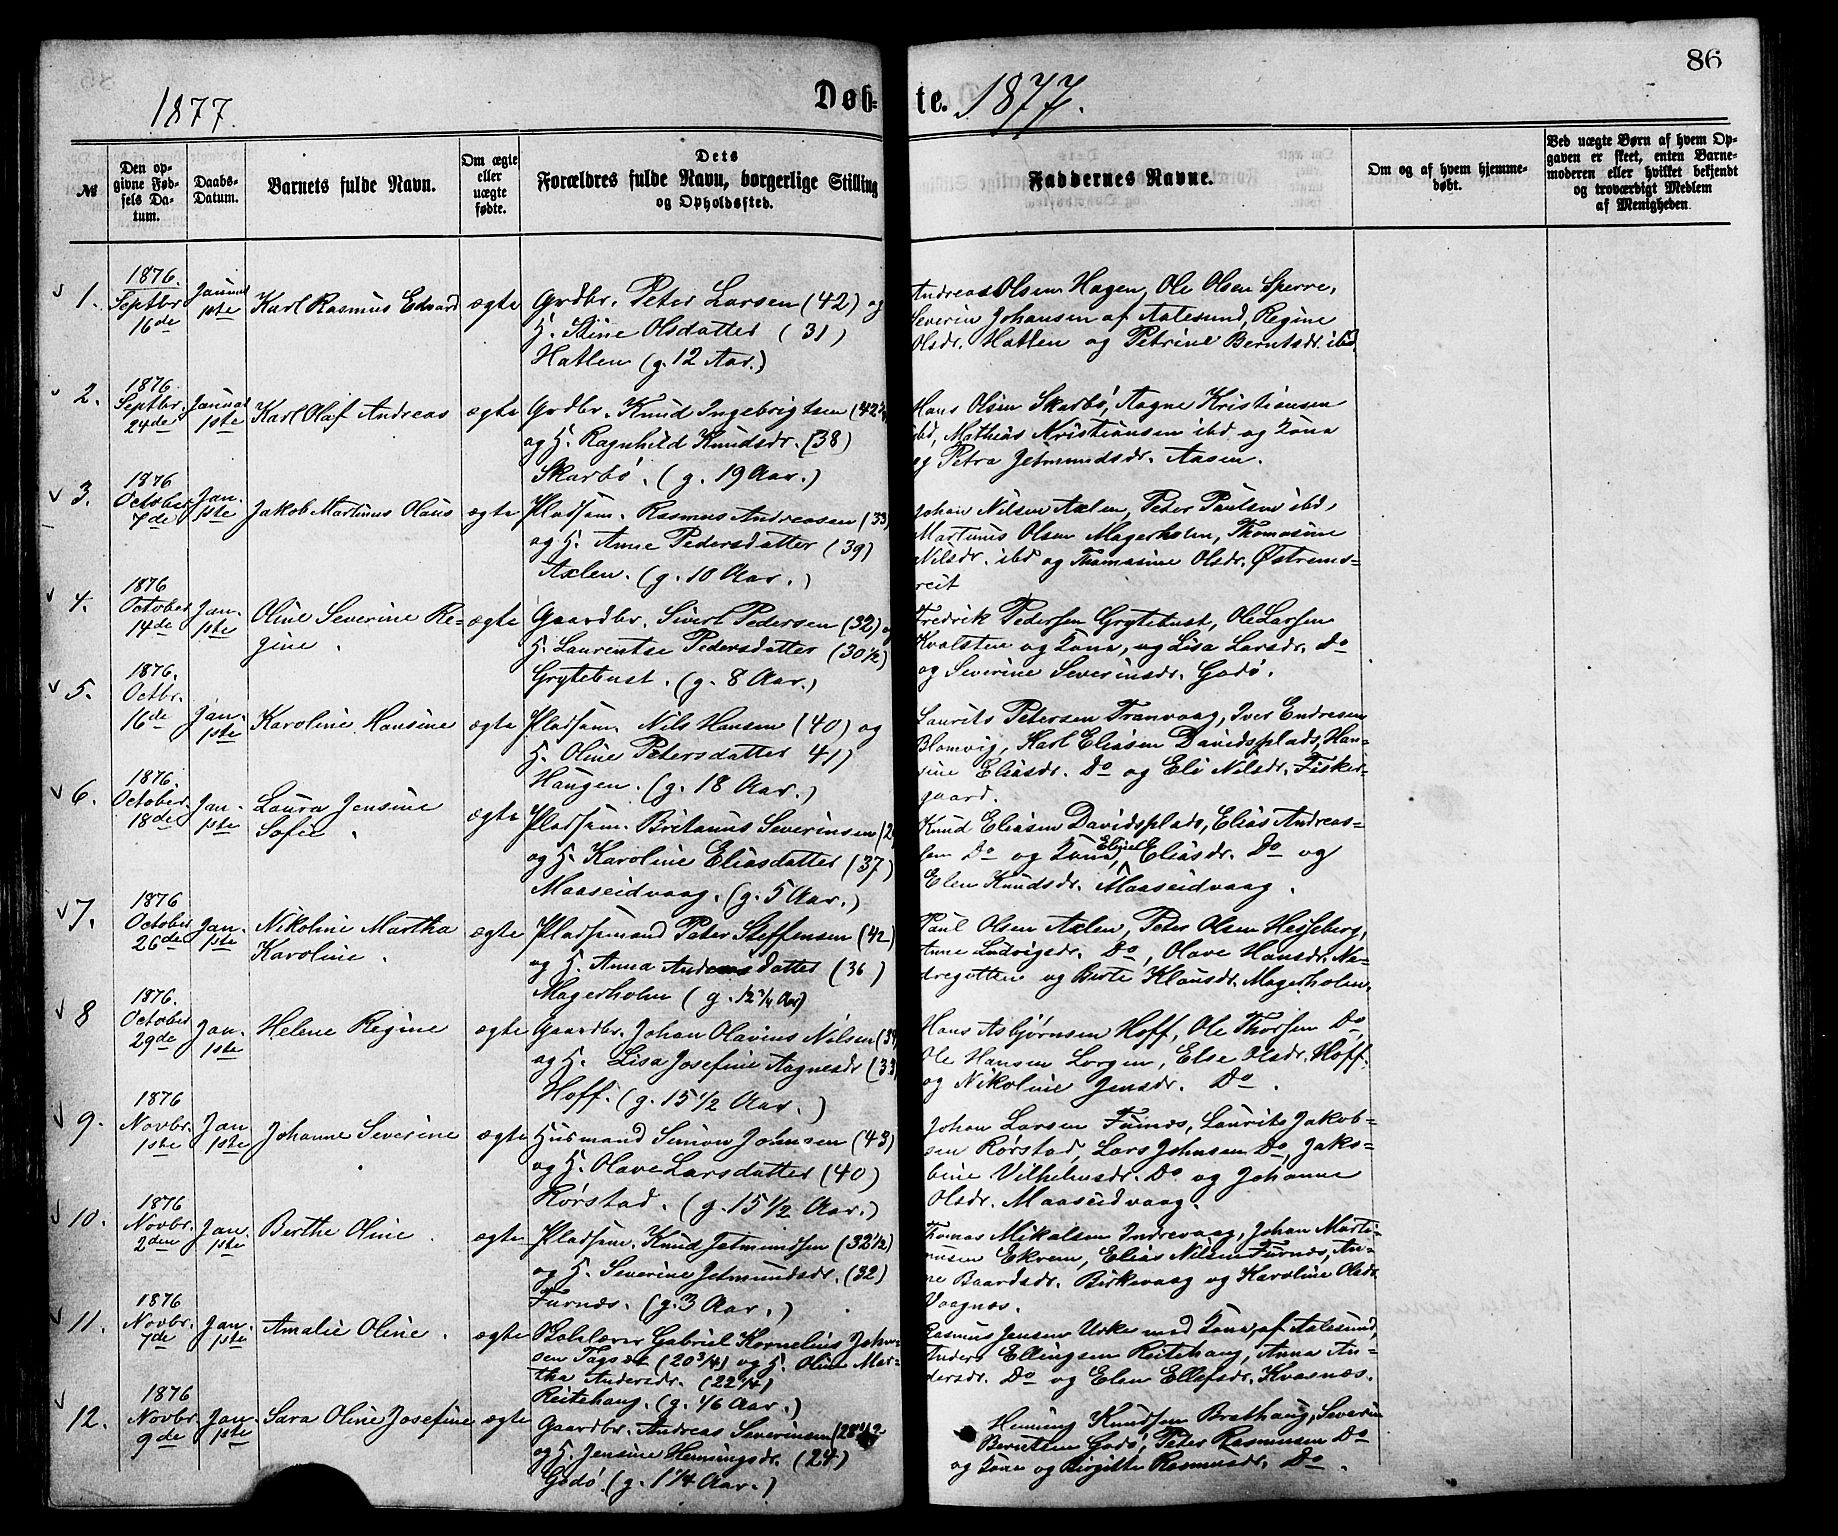 86
1877.
Døb-
te. 1877.
№
Den op-
givne Fød-
sels Da-
tum.
Daabs-
Datum.
Barnets fulde Navn.
Om ægte
eller
uægte
fødte.
Dets
Forældres fulde Navn, borgerlige Stilling
og Opholdssted.
Faddernes Navne.
Om og af hvem hjemme-
døbt.
Ved uægte Børn af hvem Op-
gaven er skeet, enten Barne-
moderen eller hvilket bekjendt
og troværdigt Medlem
af Menigheden.
1.
1876.
Septbr.
16de
Januar
1ste
Karl Rasmus Edvard
ægte
Grdbr. Peter Larsen (42) og
H. Stine Olsdatter (31)
Hatlen (g. 12 Aar.)
Andreas Olsen Hagen, Ole Olsen Sperre,
Severin Johansen af Aalesund, Regine
Olsdr. Hatlen og Petrine Berntsdr. ibd.
2.
1876.
Septbr.
24de
Januar
1ste
Karl Olaf Andreas
ægte
Grdbr. Knud Ingebrigtsen (42½
og H. Ragnhild Knudsdr. (38)
Skarbø. (g. 19 Aar.)
Hans Olsen Skarbø, Aagne Kristiansen
ibd, Mathias Kristiansen ibd og Kona
og Petra Jetmundsdr. Aasen.
3.
1876
October
7de
Jan.
1ste
Jakob Martinus Olaus
ægte
Pladsem. Rasmus Andreasen (33)
og H. Anne Pedersdatter (39)
Axlen. (g. 10 Aar.)
Johan Nilsen Axlen, Peter Paulsen ibd,
Martinus Olsen Magerholm, Thomasine
Nilsdr. ibd og Thomasine Olsdr. Østrems-
reit
4.
1876
October
14de
Jan.
1ste
Oline Severine Re-
gine.
ægte
Gaardbr. Sivert Pedersen (32) og
H. Laurentse Pedersdatter (30½)
Grytebust. (g. 8 Aar.)
Fredrik Pedersen Grytebust, Ole Larsen
Kvalsten og Kona, og Lisa Larsdr. Do
og Severine Severinsdr. Godø.
5.
1876.
Octbr.
16de
Jan.
1ste
Karoline Hansine
ægte
Pladsem. Nils Hansen (40) og
H. Oline Petersdatter 41)
Haugen. (g. 18 Aar.)
Laurits Petersen Tranvaag, Iver Endresen
Blomvig, Karl Eliasen Davidsplads, Han-
sine Eliasdr. Do og Eli Nilsdr. Fisker-
gaard.
6.
1876
October
18de
Jan.
1ste
Laura Jensine
Sofie.
ægte
Pladsem. Britanus Severinsen (2
og H. Karoline Eliasdatter (37)
Maaseidvaag. (g. 5 Aar.)
Knud Eliasen Davidsplads, Elias Andreas-
sen Do og Kona, Eliasdr. Do og
Elen Knudsdr. Maaseidvaag.
7.
1876
October
26de
Jan.
1ste
Nikoline Martha
Karoline.
ægte
Pladsemand Peter Steffensen (42)
og H. Anna Andreasdatter (36)
Magerholm (g. 12¼ Aar)
Paul Olsen Axlen, Peter Olsen Hesseberg,
Anne Ludvigsdr. Do, Olave Hansdr. Ne-
dregotten og Berte Klausdr. Magerholm.
8
1876.
October
29de
Jan.
1ste
Helene Regine
ægte
Gaardbr. Johan Olavius Nilsen (39
og H. Lisa Josefine Aagnesdr (33
Hoff. (g. 15½ Aar.)
Hans Asbjørnsen Hoff, Ole Thorsen Do,
Ole Hansen Lorgen, Else Olsdr. Hoff.
og Nikoline Jensdr. Do.
9.
1876
Novbr.
1ste
Jan
1ste
Johanne Severine
ægte
Husmand Simon Johnsen (43)
og H. Olave Larsdatter (40)
Rørstad. (g. 15½ Aar.)
Johan Larsen Furnes, Laurits Jakob-
sen Rørstad, Lars Johnsen Do, Jako-
bine Vilhelmsdr. Do og Johanne
Olsdr. Maaseidvaag.
10.
1876
Novbr.
2den
Jan.
1ste
Berthe Oline.
ægte
Pladsem. Knud Jetmundsen (32½)
og H. Severine Jetmundsdr. (32)
Furnæs. (g. 3 Aar.)
Thomas Mikalsen Indrevaag, Johan Marti-
nusen Ekrem, Elias Nilsen Furnæs, An-
ne Baardsdr. Birkevaag og Karoline Olsdr.
Vaagnæs.
11.
1876
Novbr.
7de
Jan.
1ste
Amalie Oline.
ægte
Skolelærer Gabriel Kornelius John-
sen Tagset (20¾) og H. Oline Mar-
tha Andersdr. (22¼)
Reitehaug. (g. 1/6 Aar.)
Rasmus Jensen Urke med Kona, af Aalesund,
Anders Ellingsen Reitehaug, Anna An-
dersdr. Do og Elen Ellefsdr. Kvasnes.
12.
1876
Novbr.
9de
Jan.
1ste
Sara Oline Josefine
ægte
Gaardbr. Andreas Severinsen (28½
og H. Jensine Hemingsdr. (24)
Godø (g. 1¼ Aar.)
Heming Knudsen Brathaug, Severin
Berntsen Godø, Peter Rasmusen Do
og Kona og Birgitte Rasmusdr. Do.